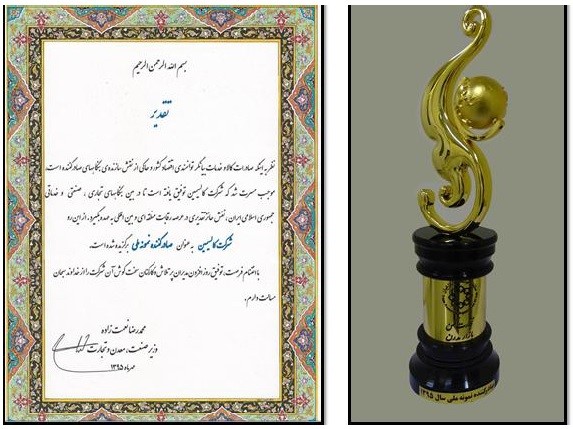 بسم الله الرحمن الرحیم
تقدیر
نظر به اینکه صادرات کالا و خدمات بیانگر توانمندی اقتصاد کشور و حاکی از نقش سازنده‌ی بنگاههای صادرکننده است،
موجب مسرت شد که شرکت کالسیمین توفیق یافته است تا در بین بنگاههای تجاری ، صنعتی و خدماتی
جمهوری اسلامی ایران ، نقش حائز تقدیری در عرصه رقابت منطقه‌ای و بین المللی به عهده بگیرد، از این رو
شرکت کالسیمین به عنوان صادرکننده نمونه ملی برگزیده شده است.
با اغتنام فرصت، توفیق روزافزون مدیران پرتلاش و کارکنان سخت کوش آن شرکت را از خداوند سبحان
مسالت دارم.
محمدرضا نعمت زاده
وزیر صنعت، معدن و تجارت
مهرماه ۱۳۹۵
صادرکننده نمونه ملی سال ۱۳۹۵